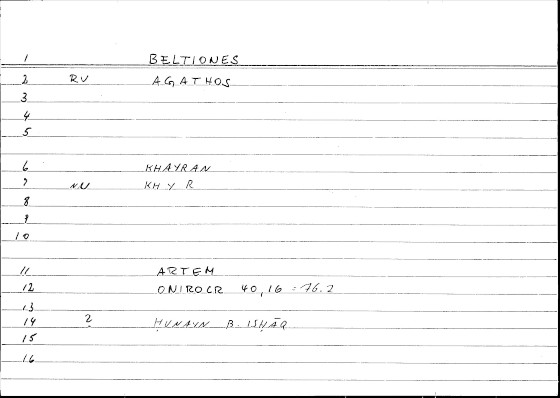 1 BELTIONES
2 RU AGATHOS
3
4
5
6 KHAYRAN
7 NU KHYR
8
9
10
11 ARTEM
12 ONIROCR 40,16 = 76.2
13
14 2 ḤUNAYN B. ISḤĀQ
15
16